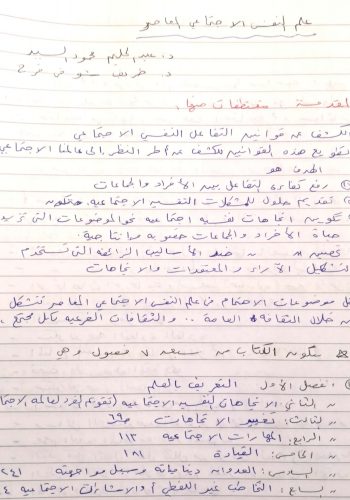 علم النفس الاجتماعي المعاصر
د. عبد الحليم محمود السيد
د. طريف شوقي فرج
المقدمة : مقتطفات منها
الكشف عن قوانين التفاعل النفسي الاجتماعي
تطويع هذه القوانين للكشف عن أطر النظر إلى عالمنا الاجتماعي
الهدف هو
رفع كفاءة التفاعل بين الأفراد والجماعات
تقديم حلول للمشكلات النفسية الاجتماعية
تكوين اتجاهات نفسية اجتماعية نحو الموضوعات التي تزيد
حياة الأفراد والجماعات خصوبة وإنتاجية
تحصين " " ضد الأساليب الزائفة التي تستخدم
لتشكيل الآراء والمعتقدات والاتجاهات
موضوعات الاهتمام في علم النفس الاجتماعي المعاصر تتشكل
من خلال الثقافة العامة .. والثقافات الفرعية بكل مجتمع .
يتكون الكتاب من سبعة ٧ فصول وهي
الفصل الأول التعريف بالعلم
" الثاني الاتجاهات النفسية الاجتماعية
" الثالث: تغيير الاتجاهات ٦٩
" الرابع: المهارات الاجتماعية ١١٣
" الخامس: القيادة ١٨١
" السادس: العدوان دينامياته وسبل مواجهته ٢٤١
" السابع: التخاطب غير اللفظي والاشارات الاجتماعية